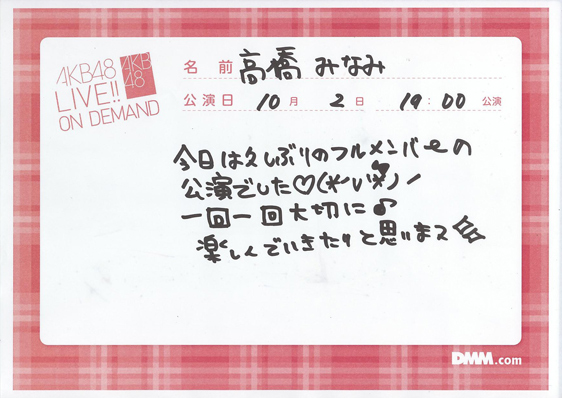 AKB48
LIVE!!
ON DEMAND
AKB
48
名 前 高橋 みなみ
公演日 10 月 2 日 19:00 公演
今日は久しぶりのフルメンバーの
公演でした♡(*'∨'*)ノ
一回一回大切に♪
楽しんでいきたいと思いまス
DMM.com